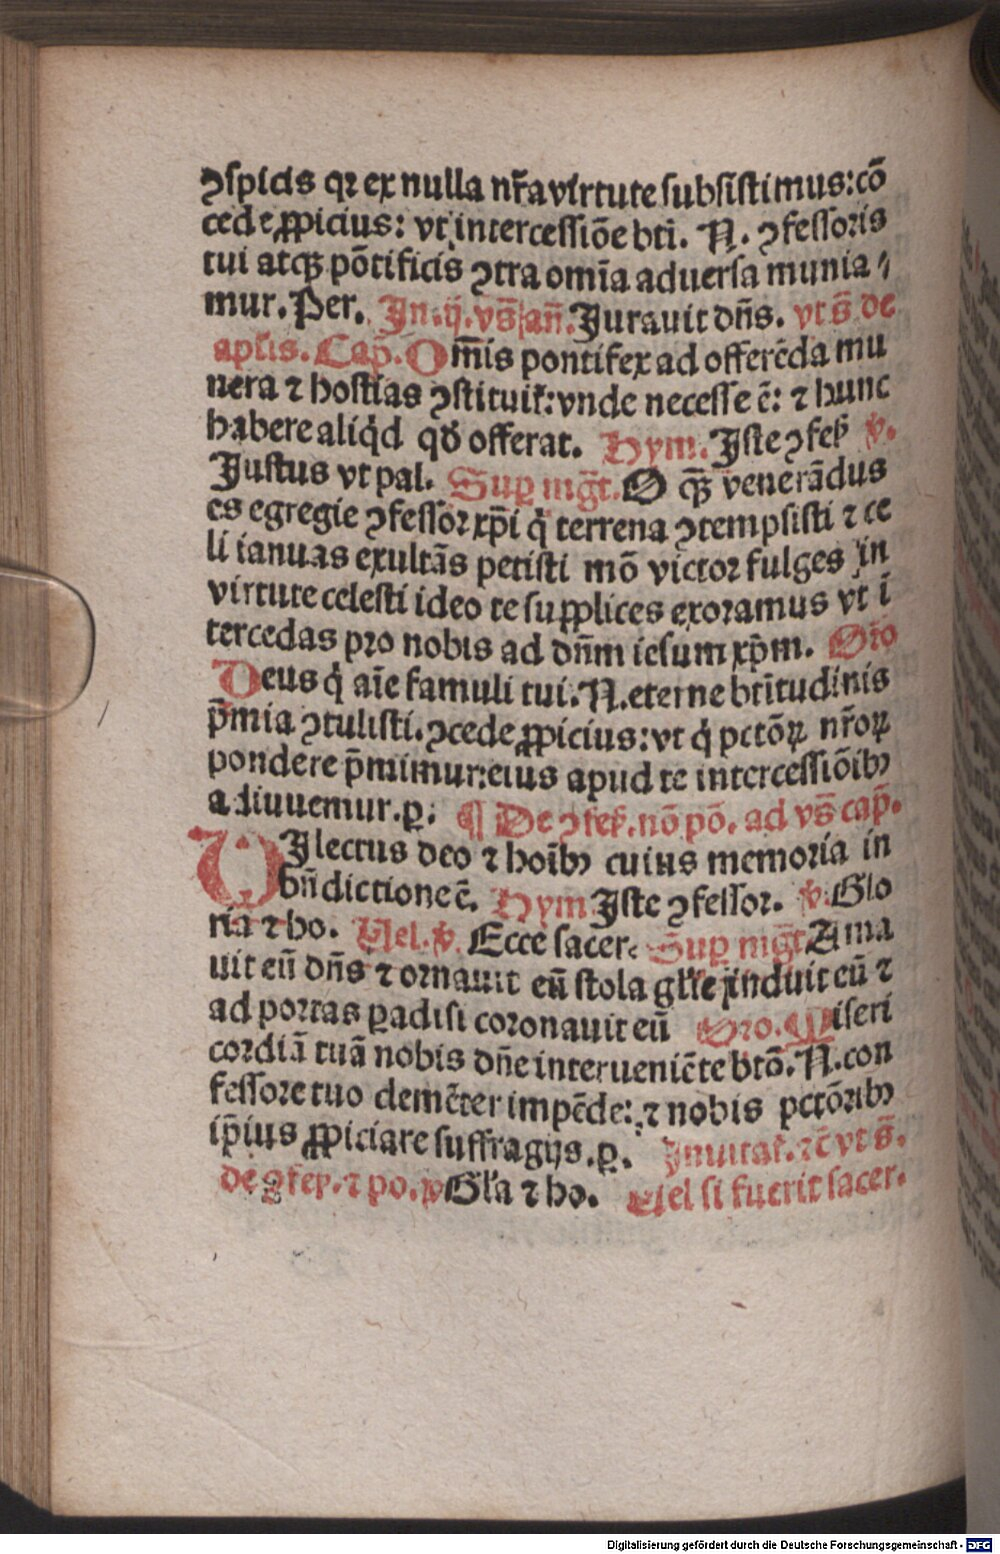 ꝯspicis qꝛ ex nulla nr̃a virtute subsistimus: cõ
cede ꝓpicius: vt intercessiõe bti. N. ꝯfessoris
tui atqꝫ põtificis ꝯtra omĩa aduersa munia⸗
mur. Per. In .ij. vs̃ an̄. Jurauit dñs. vt s̃ de
apl'is. Cap̃. Om̃is pontifex ad offerẽda mu
nera ⁊ hostias ꝯstituit̃: vnde necesse ẽ: ⁊ hunc
habere aliq̇d qḋ offerat. Hym. Iste ꝯfes̃ v̊.
Justus vt pal. Suꝑ mg̃t. O qꝫ̃ venerãdus
es egregie ꝯfessoꝛ xp̃i q̇ terrena ꝯtempsisti ⁊ ce
li ianuas exultãs petisti mõ victoꝛ fulges in
virtute celesti ideo te supplices exoꝛamus vt ĩ
tercedas pꝛo nobis ad dñm iesum xp̃m. Oꝛ̃o
Deus q̇ aĩe famuli tui. N. eterne btĩtudinis
p̃mia ꝯtulisti. ꝯcede ꝓpicius: vt q̇ pctõꝝ nr̃oꝝ
pondere p̃mimur: eius apud te intercessiõibꝰ
adiuuemur. ꝑ. ¶ De ꝯfes̃. nõ põ. ad vs̃ cap̃.
DIlectus deo ⁊ hoĩbꝰ cuius memoria in
bñdictione ẽ. Hym Iste ꝯfessor. v̊. Glo
ria ⁊ ho. Uel. v̊. Ecce sacer. Suꝑ mg̃t Ama
uit eũ dñs ⁊ oꝛnauit eũ stola gl'ie induit eũ ⁊
ad poꝛtas ꝑadisi coꝛonauit eũ Oꝛo. Miseri
coꝛdiã tuã nobis dñe interueniẽte btõ. N. con
fessoꝛe tuo clemẽter impẽde: ⁊ nobis pctõꝛibꝰ
ip̃ius ꝓpiciare suffragijs. ꝑ. Inuitat̃. ⁊c̃ vt s̃.
de ꝯfes̃. ⁊ po. v̊ Gl'a ⁊ ho. Uel si fuerit sacer.
Digitalisierung gefördert durch die Deutsche Forschungsgemeinschaft - DFG